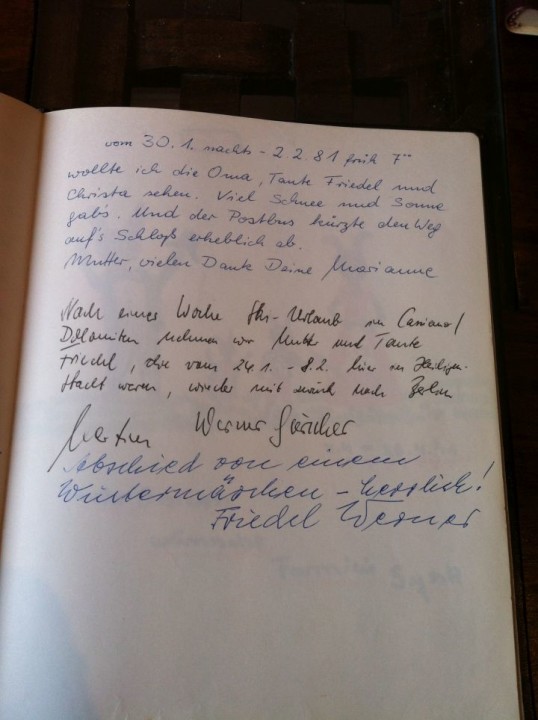 vom 30.1. nachts - 2.2.81 früh 7⁰⁰
wollte ich die Oma, Tante Friedel und
Christa sehen. Viel Schnee und Sonne
gab's. Und der Postbus kürzte den Weg
auf's Schloß erheblich ab.
Mutter, vielen Dank Deine Marianne
Nach einer Woche Ski-Urlaub in
Dolomiten nehmen wir Mutter und Tante
Friedel, die vom 24.1. - 8.2. hier in Heiligen-
stadt waren, wieder mit zurück nach Berlin
Werner
Abschied von einem
Wintermärchen - herrlich!
Friedel Werner